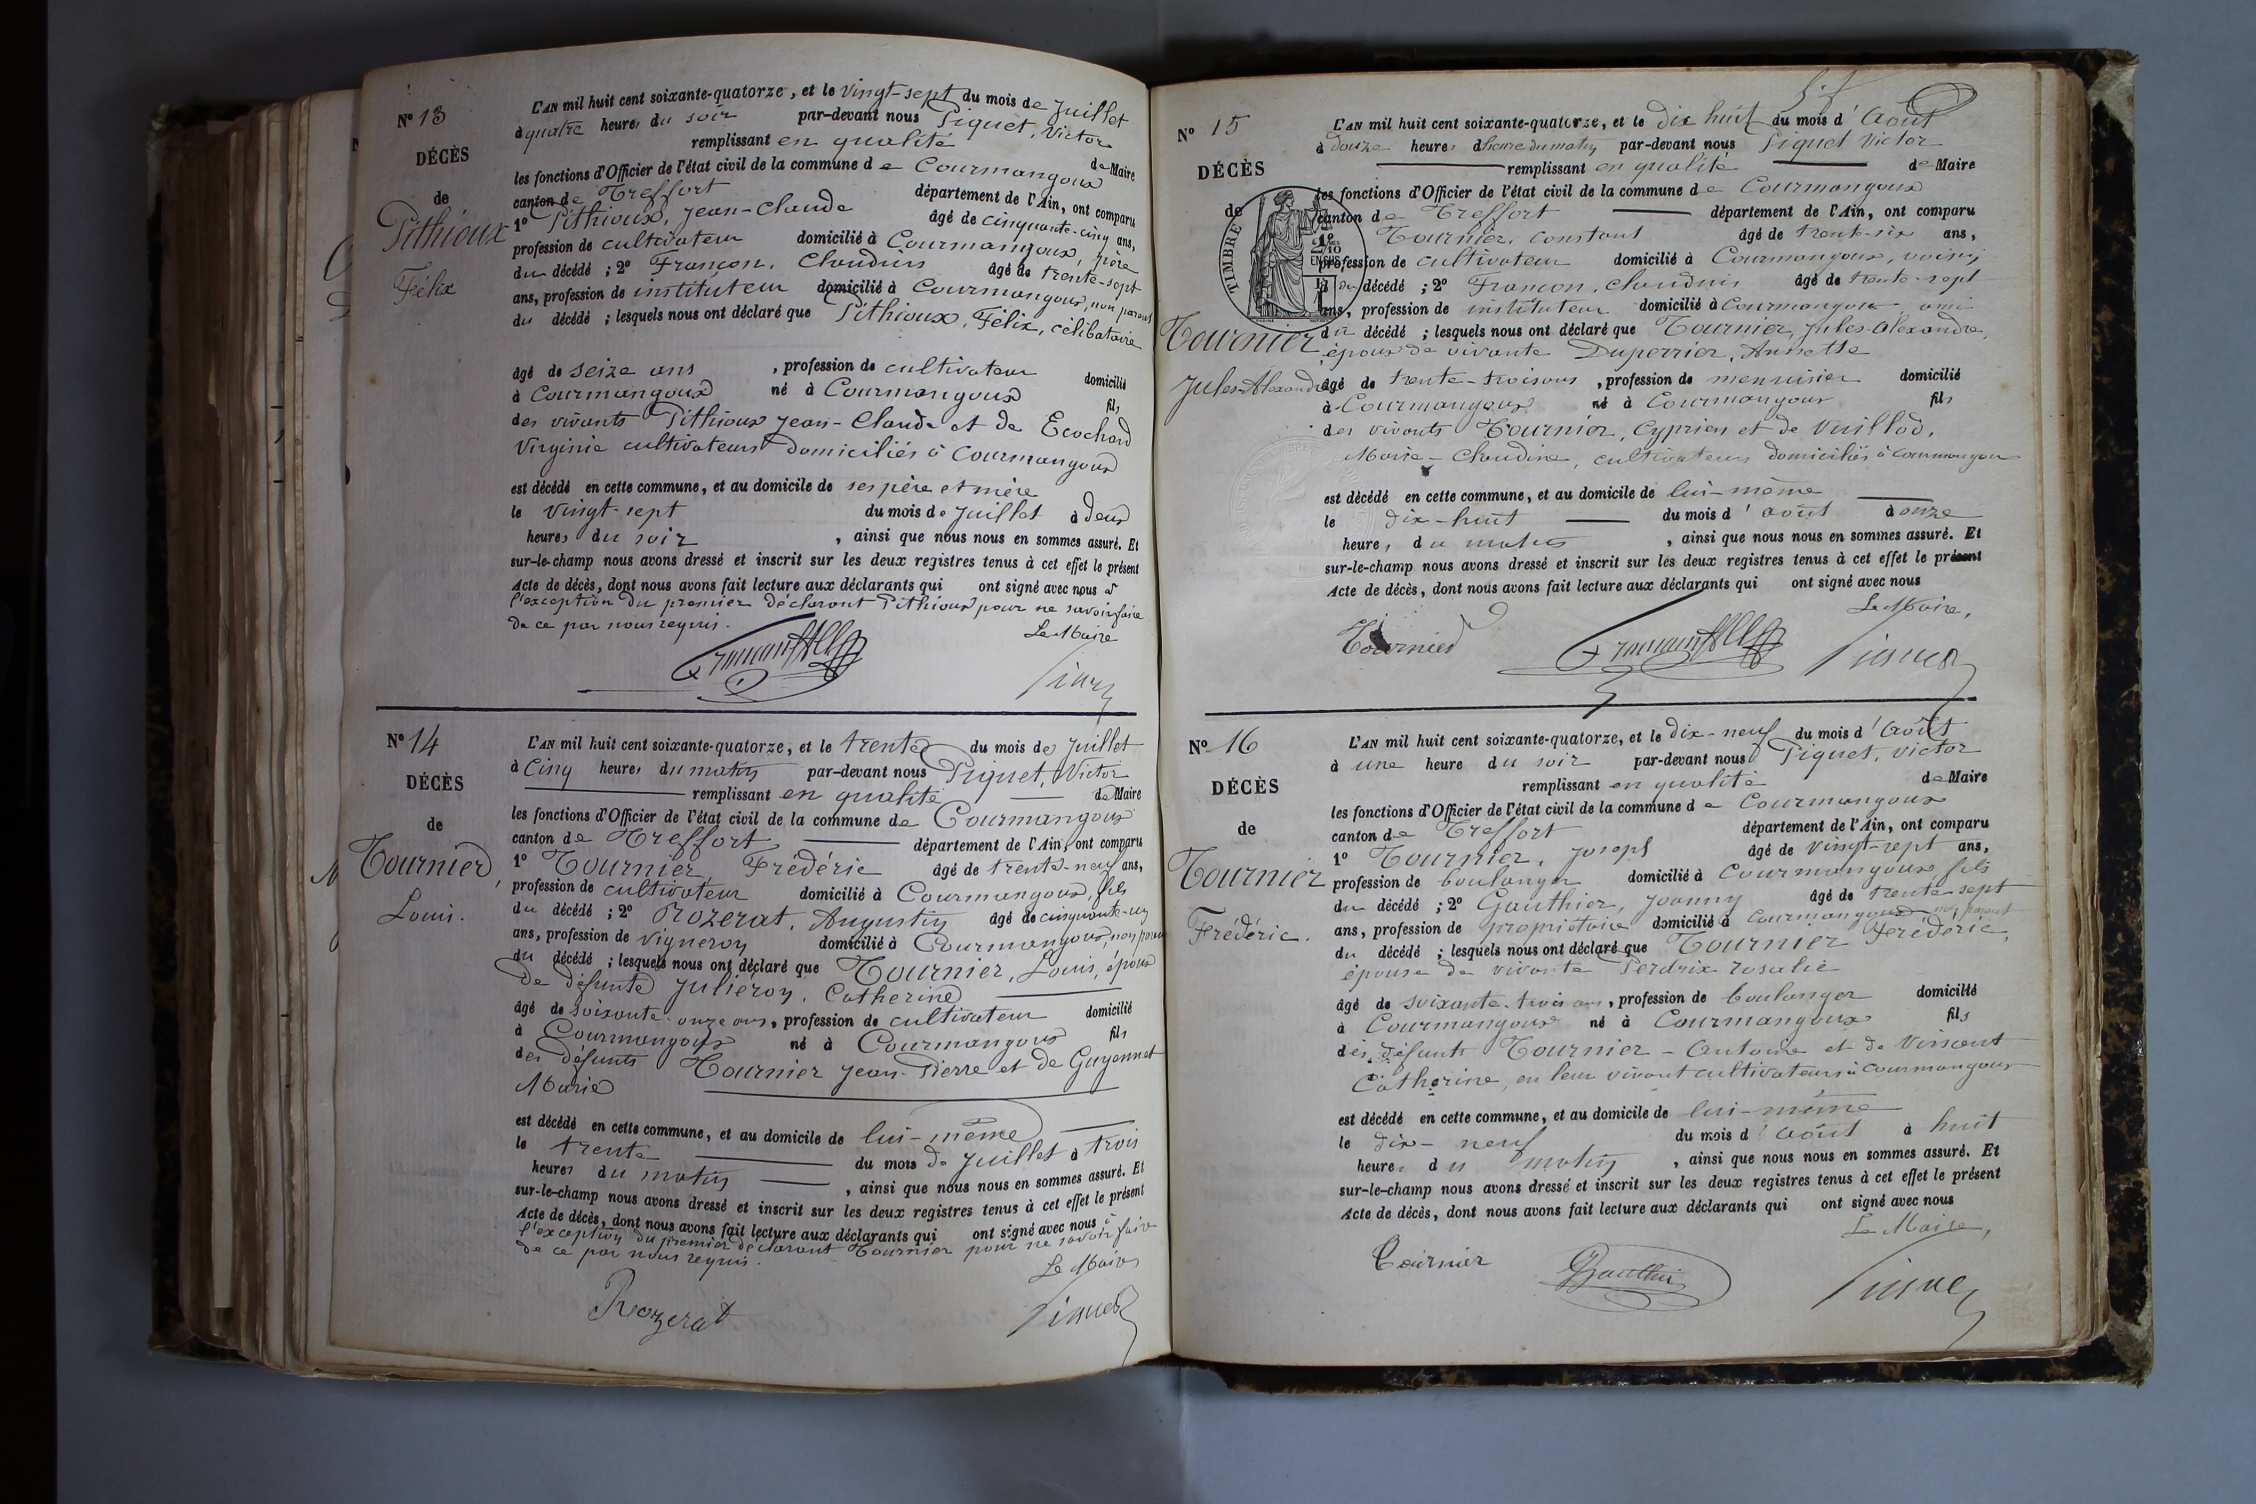 N° 13
DÉCÈS
de
Pithioux
Félix
L'AN mil huit cent soixante-quatorze, et le vingt-sept du mois de Juillet
à quatre heures du soir par-devant nous Piquet, Victor
remplissant en qualité de Maire
les fonctions d'Officier de l'état civil de la commune de Courmangoux
canton de Treffort département de l'Ain, ont comparu
1° Pithioux, Jean-Claude âgé de cinquante-cinq ans,
profession de cultivateur domicilié à Courmangoux, père
du décédé ; 2° Françon, Claudius âgé de trente-sept
ans, profession de instituteur domicilié à Courmangoux, non parent
du décédé ; lesquels nous ont déclaré que Pithioux, Félix, célibataire
âgé de seize ans , profession de cultivateur domicilié
à Courmangoux né à Courmangoux fils
des vivants Pithioux Jean-Claude et de Ecochard
Virginie cultivateurs domiciliés à Courmangoux
est décédé en cette commune, et au domicile de ses père et mère
le vingt-sept du mois de Juillet à deux
heures du soir , ainsi que nous nous en sommes assuré. Et
sur-le-champ nous avons dressé et inscrit sur les deux registres tenus à cet effet le présent
Acte de décès, dont nous avons fait lecture aux déclarants qui ont signé avec nous à
l'exception du premier déclarant Pithioux pour ne savoir faire
de ce par nous requis.
Le Maire
Piquet
N° 14
DÉCÈS
de
Tournier,
Louis.
L'AN mil huit cent soixante-quatorze, et le trente du mois de Juillet
à cinq heures du matin par-devant nous Piquet, Victor
remplissant en qualité de Maire
les fonctions d'Officier de l'état civil de la commune de Courmangoux
canton de Treffort département de l'Ain, ont comparu
1° Tournier, Frédéric âgé de trente-neuf ans,
profession de cultivateur domicilié à Courmangoux, fils
du décédé ; 2° Rozerat, Augustin âgé de cinquante-un
ans, profession de vigneron domicilié à Courmangoux, non parent
du décédé ; lesquels nous ont déclaré que Tournier, Louis, époux
de défunte Julieron, Catherine
âgé de soixante-onze ans, profession de cultivateur domicilié
à Courmangoux né à Courmangoux fils
des défunts Tournier Jean-Pierre et de Guyonnet
Marie
est décédé en cette commune, et au domicile de lui-même
le trente du mois de Juillet à trois
heures du matin , ainsi que nous nous en sommes assuré. Et
sur-le-champ nous avons dressé et inscrit sur les deux registres tenus à cet effet le présent
Acte de décès, dont nous avons fait lecture aux déclarants qui ont signé avec nous à
l'exception du premier déclarant Tournier pour ne savoir faire
de ce par nous requis.
Le Maire
Rozerat
Piquet
N° 15
DÉCÈS
de
TIMBRE
Tournier
Jules-Alexandre
L'AN mil huit cent soixante-quatorze, et le dix huit du mois d'Août
à douze heures du matin par-devant nous Piquet Victor
remplissant en qualité de Maire
les fonctions d'Officier de l'état civil de la commune de Courmangoux
canton de Treffort département de l'Ain, ont comparu
1° Tournier, Constant âgé de trente-six ans,
profession de cultivateur domicilié à Courmangoux, voisin
du décédé ; 2° Françon, Claudius âgé de trente-sept
ans, profession de instituteur domicilié à Courmangoux, ami
du décédé ; lesquels nous ont déclaré que Tournier, Jules-Alexandre,
époux de vivante Duperrier, Annette
âgé de trente-trois ans , profession de menuisier domicilié
à Courmangoux né à Courmangoux fils
des vivants Tournier, Cyprien et de Vuillod,
Marie-Claudine, cultivateurs domiciliés à Courmangoux
est décédé en cette commune, et au domicile de lui-même
le dix-huit du mois d'août à onze
heures du matin , ainsi que nous nous en sommes assuré. Et
sur-le-champ nous avons dressé et inscrit sur les deux registres tenus à cet effet le présent
Acte de décès, dont nous avons fait lecture aux déclarants qui ont signé avec nous
Le Maire,
Tournier
Piquet
N° 16
DÉCÈS
de
Tournier
Frédéric.
L'AN mil huit cent soixante-quatorze, et le dix-neuf du mois d'Août
à une heure du soir par-devant nous Piquet, Victor
remplissant en qualité de Maire
les fonctions d'Officier de l'état civil de la commune de Courmangoux
canton de Treffort département de l'Ain, ont comparu
1° Tournier, Joseph âgé de vingt-sept ans,
profession de boulanger domicilié à Courmangoux, fils
du décédé ; 2° Gauthier, Joanny âgé de trente-sept
ans, profession de propriétaire domicilié à Courmangoux, non parent
du décédé ; lesquels nous ont déclaré que Tournier Frédéric,
épouse de vivante Perdrix Rosalie
âgé de soixante-trois ans, profession de boulanger domicilié
à Courmangoux né à Courmangoux fils
des défunts Tournier-Antoine et de Vincent
Catherine, en leur vivant cultivateurs à Courmangoux
est décédé en cette commune, et au domicile de lui-même
le dix-neuf du mois d'août à huit
heures du matin , ainsi que nous nous en sommes assuré. Et
sur-le-champ nous avons dressé et inscrit sur les deux registres tenus à cet effet le présent
Acte de décès, dont nous avons fait lecture aux déclarants qui ont signé avec nous
Le Maire,
Tournier
Gauthier
Piquet